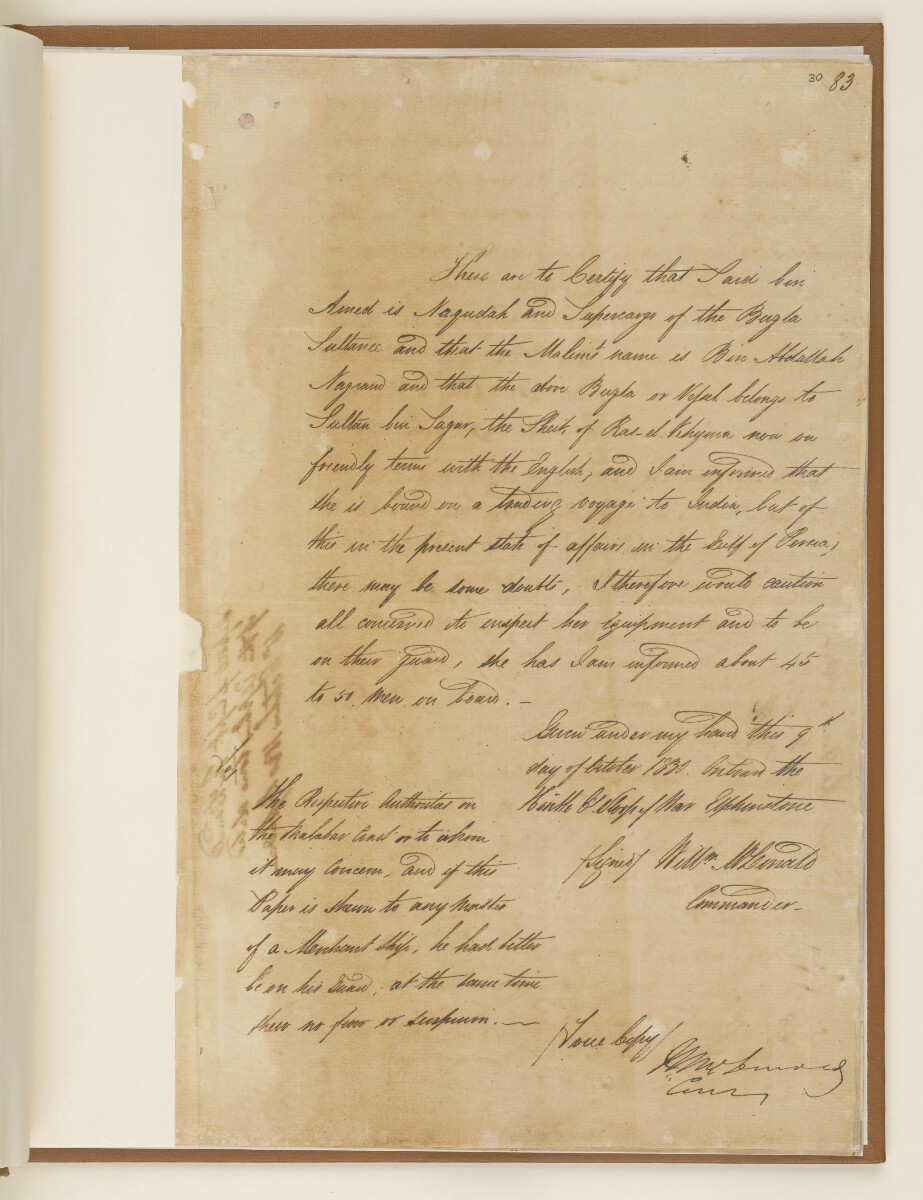 30 83
These are to Certify that Said bin
Amed is Naqudah and Supercargo of the Bugla
Sultanee and that the Malim's name is Bin Abdallah
and that the above Bugla or Vessel belongs to
Sultan bin Sagar, the Sheik of Ras-el-Khyma now on
friendly terms with the English, and I am informed that
she is bound on a trading voyage to India, but of
this in the present state of affairs in the Gulf of Persia,
there may be some doubts, I therefore would caution
all concerned to inspect her Equipment and to be
on their guard, she has I am informed about 45
to 50 Men on board. —
Given under my hand this 9th
day of October 1830 onboard the
Sloop of War Elphinstone
(Signed) Willm McDonald
Commander —
To,
The Respective Authorities on
the Malabar Coast or to whom
it may Concern, and if this
Paper is shewn to any Master
of a Merchant Ship, he had better
be on his Guard, at the same time
shew no fear or suspicion. —
(True Copy)